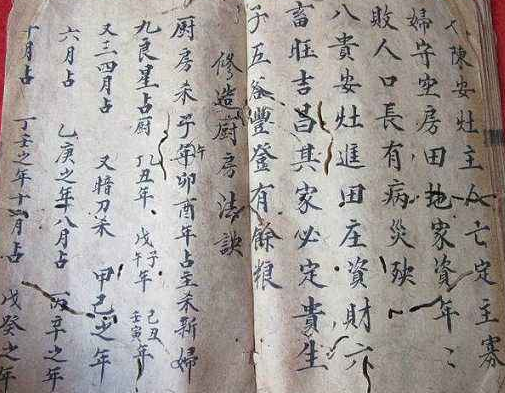 入陳安灶主人亡定主寡
婦守空房田地家資年〻
敗人口長有病災殃
八貴安灶進田庄資財六
畜旺吉昌其家必定貴生
子五谷豐登有餘粮
修造厨房法訣
厨房未子午年卯酉年占主未新婦
九良星占厨 乙丑年 戊子午年 己丑壬寅年
又三四月占 又暗刀未 甲己之年
六月占 乙庚之年八月占 丙辛之年
十月占 丁壬之年十一月占 戊癸之年